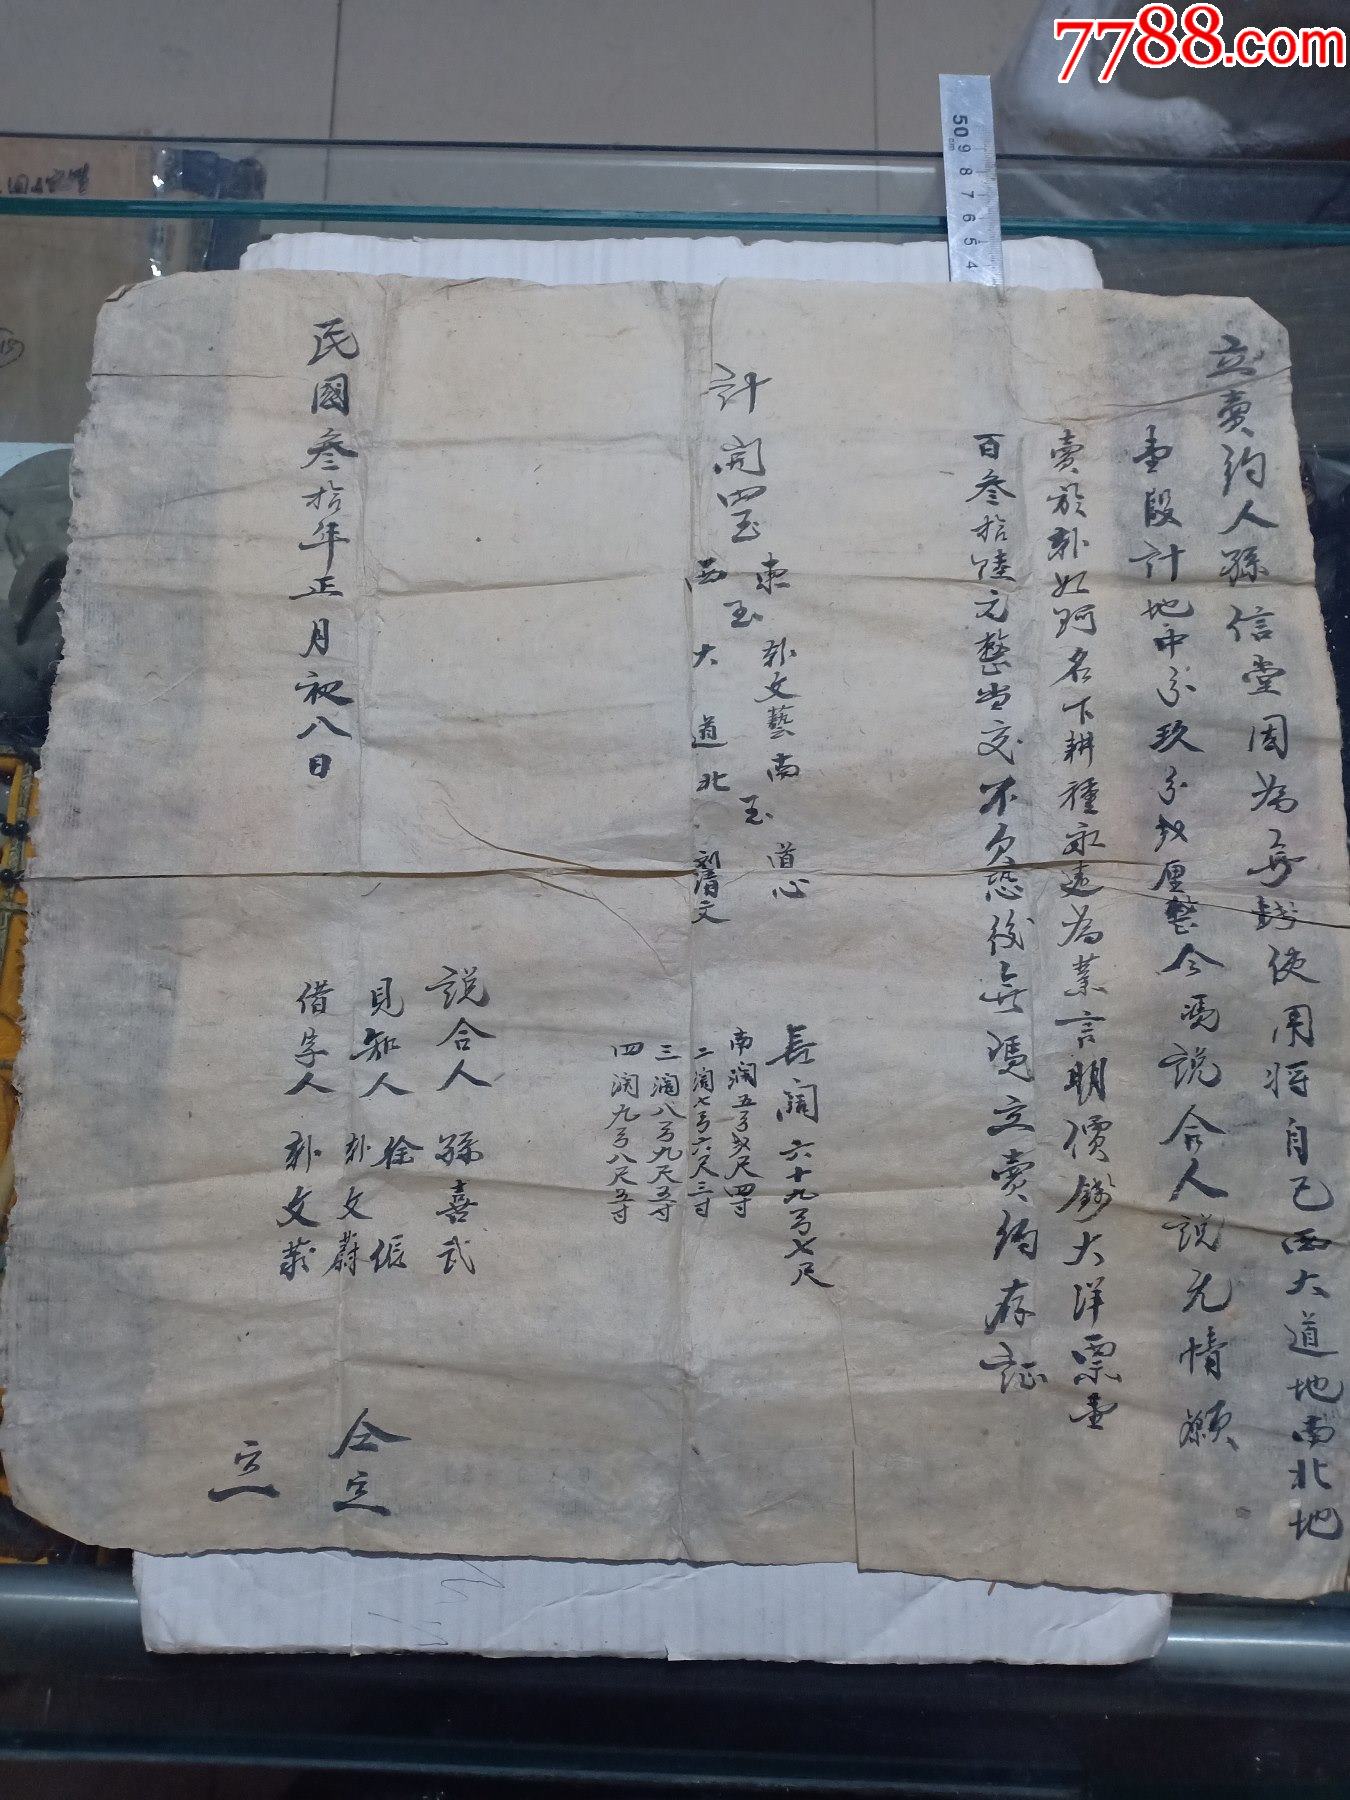 7788.com
立賣約人孫信堂因為無錢使用將自己西大道地南北地
壹段計地中分玖分弍厘整今馮說合人說允情願
賣於 名下耕種永遠為業言明價錢大洋票壹
百叁拾陸元整當交不欠恐後無馮立賣約存証
計開四至 東至 文藝南至道心
西大道北 刘清文
長濶六十九弓七尺
南濶五弓弍尺四寸
二濶七弓六尺三寸
三濶八弓九尺五寸
四濶九弓八尺五寸
說合人 孫喜武
見知人 徐 張
文蔚
借字人 文
仝立
民國叁拾年正月初八日
立
50 9 8 7 6 5 4